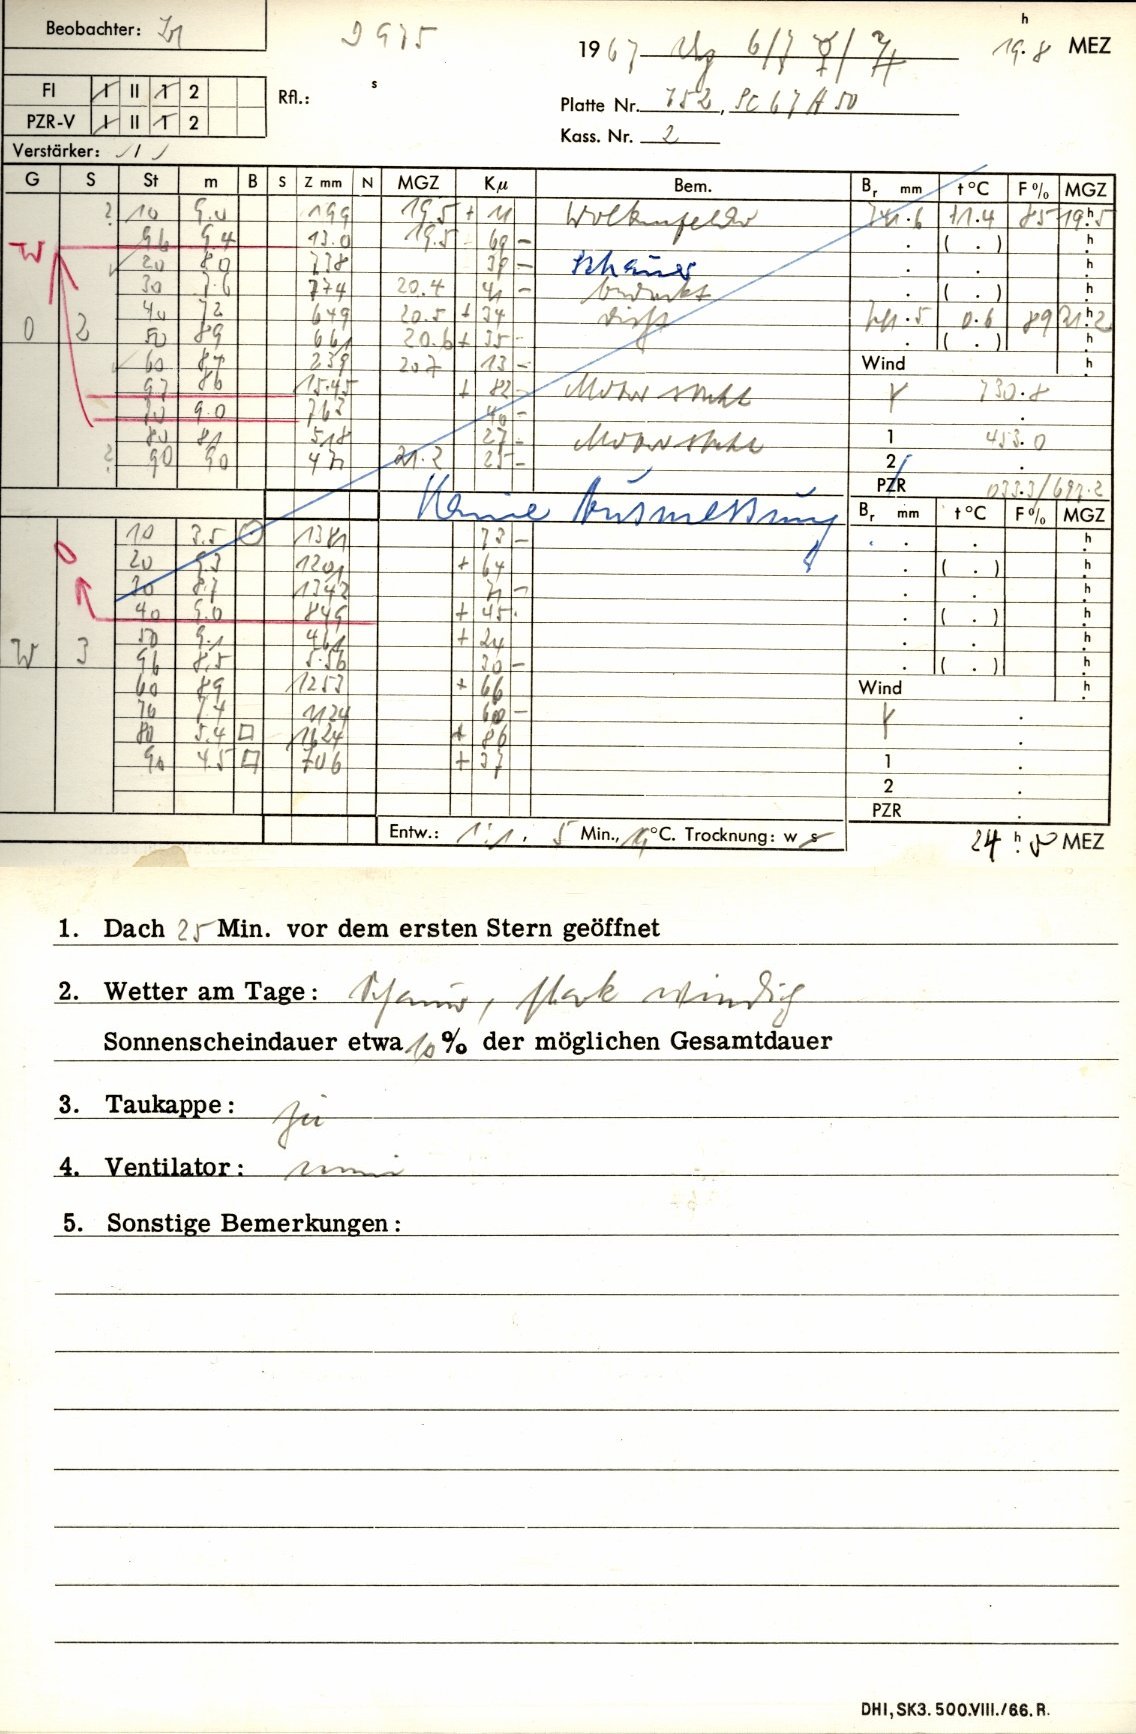 Beobachter:
D 975
h
1967 6/7 ☿/♃ 19.8 MEZ
FI I II 1 2
Rfl.: s
Platte Nr. 752, Sc 67 A 50
PZR-V I II 1 2
Kass. Nr. 2
Verstärker: / / /
G S St m B S Z mm N MGZ Kµ Bem. Br mm t °C F % MGZ
? 10 9.0 199 19.5 + 11 Wolkenfelder 741.6 11.4 85 19h.5
W 96 9.4 13.0 19.5 69 - . ( . ) h
20 8.0 738 39 - Schauer . . h
30 7.6 774 20.4 41 - bedeckt . ( . ) h
40 72 649 20.5 + 34 741.5 0.6 89 21h.2
0 2 50 89 661 20.6 + 35 - . ( . ) h
60 87 239 207 13 - Wind h
97 86 15.45 + 82 - Motor steht γ 730.8
70 9.0 763 40 - .
80 81 518 27 - Motor steht 1 453.0
? 90 90 471 21.2 25 - 2 .
PZR 033.3/697.2
Keine Ausmessung
Br mm t °C F % MGZ
10 7.5 1381 73 - . . h
0 20 9.3 1201 + 64 . ( . ) h
30 8.7 1342 71 - . . h
40 9.0 849 + 45 . ( . ) h
50 9.1 461 + 24 . . h
W 3 96 8.5 5.56 30 - . ( . ) h
60 89 1253 + 66 Wind h
70 7.4 1124 60 - γ .
80 5.4 □ 1624 + 86 .
90 4.5 □ 706 + 37 1 .
2 .
PZR .
Entw.: 1:1. 5 Min., 19 °C. Trocknung: w s
24 h.5 MEZ
1. Dach 25 Min. vor dem ersten Stern geöffnet
2. Wetter am Tage: Schauer, stark windig
Sonnenscheindauer etwa 10 % der möglichen Gesamtdauer
3. Taukappe: zu
4. Ventilator:
5. Sonstige Bemerkungen:
DHI, SK3. 500.VIII./66. R.